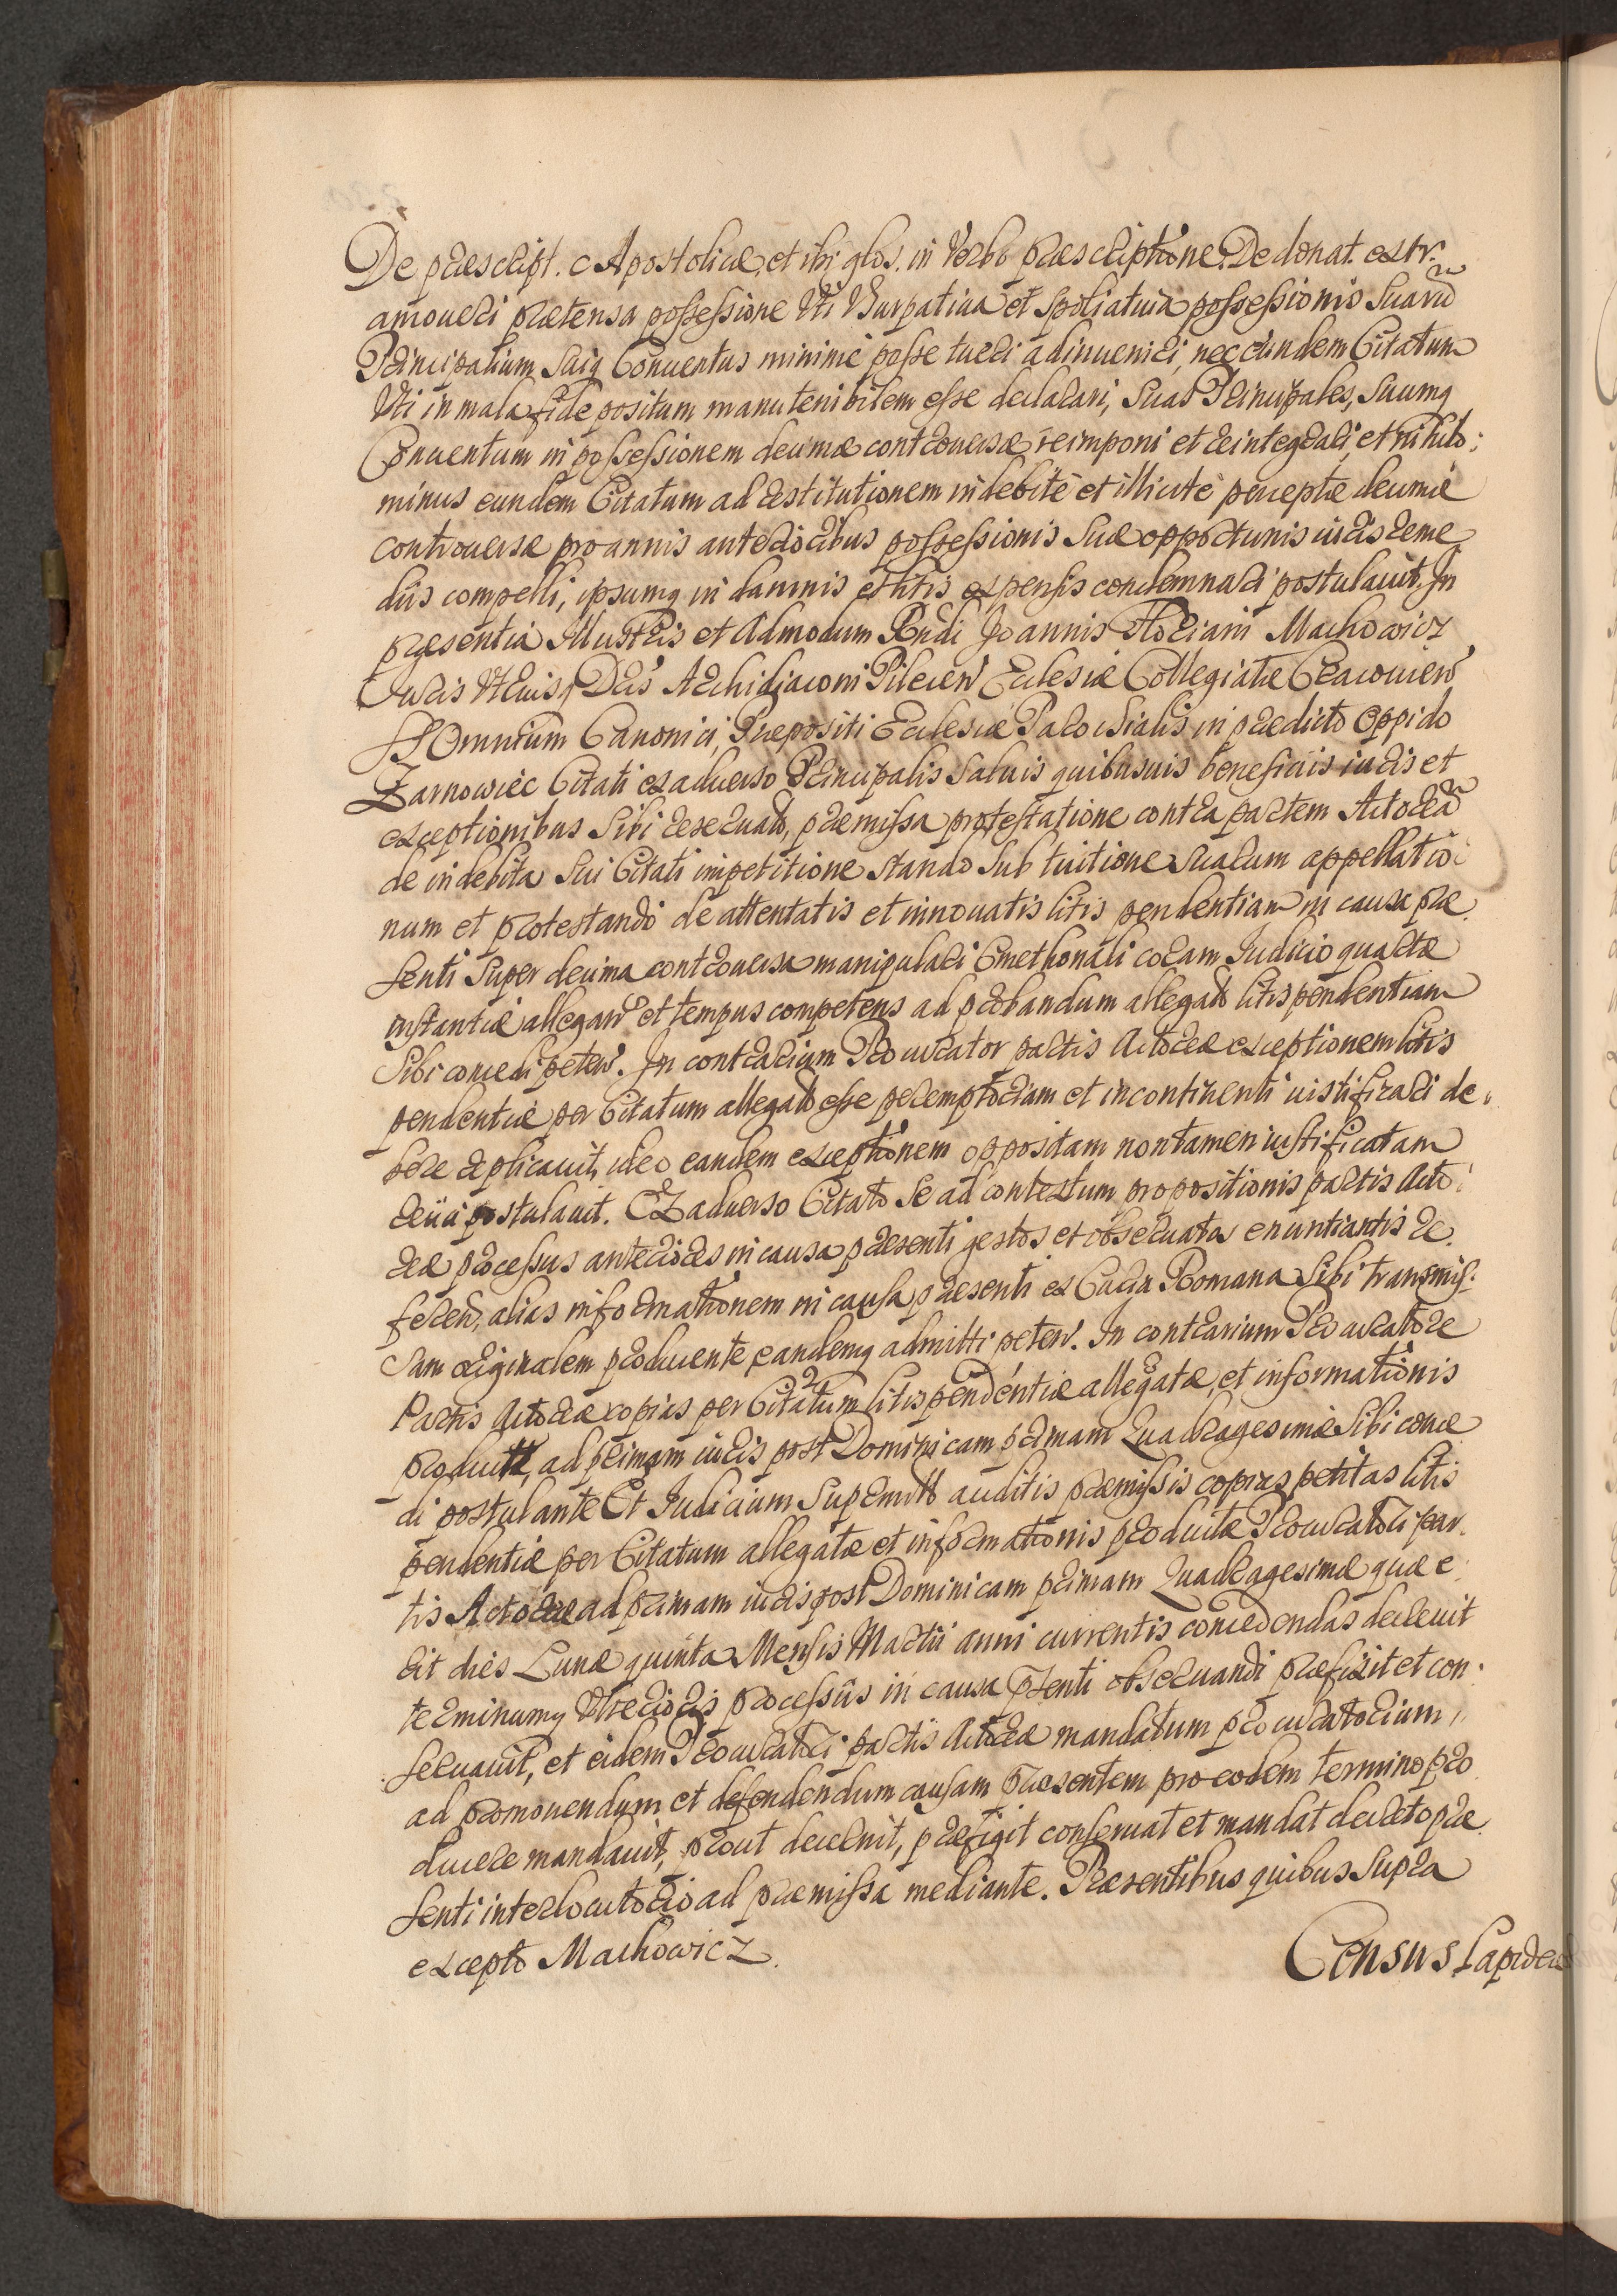 De præscript. c Apostolicæ, et ibi glos. in Verbo præscriptione. De donat. extr.
amoueri prætensa possessione Vti Vsurpatiua et spoliatiua possessionis Suarũ
Principalium Suiq Conuentus minimè posse tueri adinueniri, nec eundem Citatum
Vti in mala fide positum manutenibilem esse declarari, Suas Principales, Suumq
Conuentum in possessionem decimæ controuersæ reimponi et reintegrari, et nihilo:
minus eundem Citatum ad restitutionem indebitè et illicitè perceptæ decimæ
controuersæ pro annis anterioribus possessionis Suæ opportunis iuris reme
diis compelli, ipsumq in damnis et litis expensis condemnari postulauit. In
præsentia Illustris et Admodum Rndi Joannis Floriani Machowicz
Iuris Vtriusq Dris Archidiaconi Pilecen Eclesiæ Collegiatæ Cracouien
SS Omnium Canonici, Præpositi Eclesiæ Parochialis in prædicto Oppido
Zarnowiec Citati ex aduerso Principalis Saluis quibusuis beneficiis iuris et
exceptionibus Sibi reseruato, præmissa protestatione contra partem Actoreã
de indebita Sui Citati impetitione stando Sub tuitione Suarum appellatio:
num et protestando de attentatis et innouatis litis pendentiam in causa præ
senti Super decima controuersa manipulari Cmethonali coram Iudicio quartæ
instantiæ allegan et tempus competens ad probandum allegato litis pendentiam
Sibi concedi peten. In contrarium Procurator partis Actoreæ exceptionem litis
pendentiæ per Citatum allegato esse peremptoriam et incontinenti iustificari de
bere replicauit, ideo eandem exceptionem oppositam non tamen iustificatam
reiici postulauit. Ex aduerso Citato Se ad contextum propositionis partis Acto:
reæ processus anteriores in causa præsenti gestos et obseruatos enuntiantis re
feren, alias informationem in causa præsenti ex Curia Romana Sibi transmis:
Sam originalem producente eandemq admitti peten. In contrarium Procuratore
Partis Actoreæ copias per Citatum litis pendentiæ allegatæ, et informationis
productæ, ad primam iuris post Dominicam primam Quadragesimæ Sibi conce
di postulante Et Iudicium Supremũ auditis præmissis copias petitas litis
pendentiæ per Citatum allegatæ et informationis productæ Procuratori par
tis Actoreæ ad primam iuris post Dominicam primam Quadragesimæ quæ e
rit dies Lunæ quinta Mensis Martii anni currentis concedendas decreuit
terminumq Vlterioris processus in causa pszenti obseruandi præfixit et con
seruauit, et eidem Procuratori partis Actoreæ mandatum procuratorium
ad promouendum et defendendum causam præsentem pro eodem termino pro
ducere mandauit, prout decernit, præfigit conseruat et mandat decreto præ
senti interlocutorio ad præmissa mediante. Præsentibus quibus Supra
excepto Machowicz.
Census Lapidea